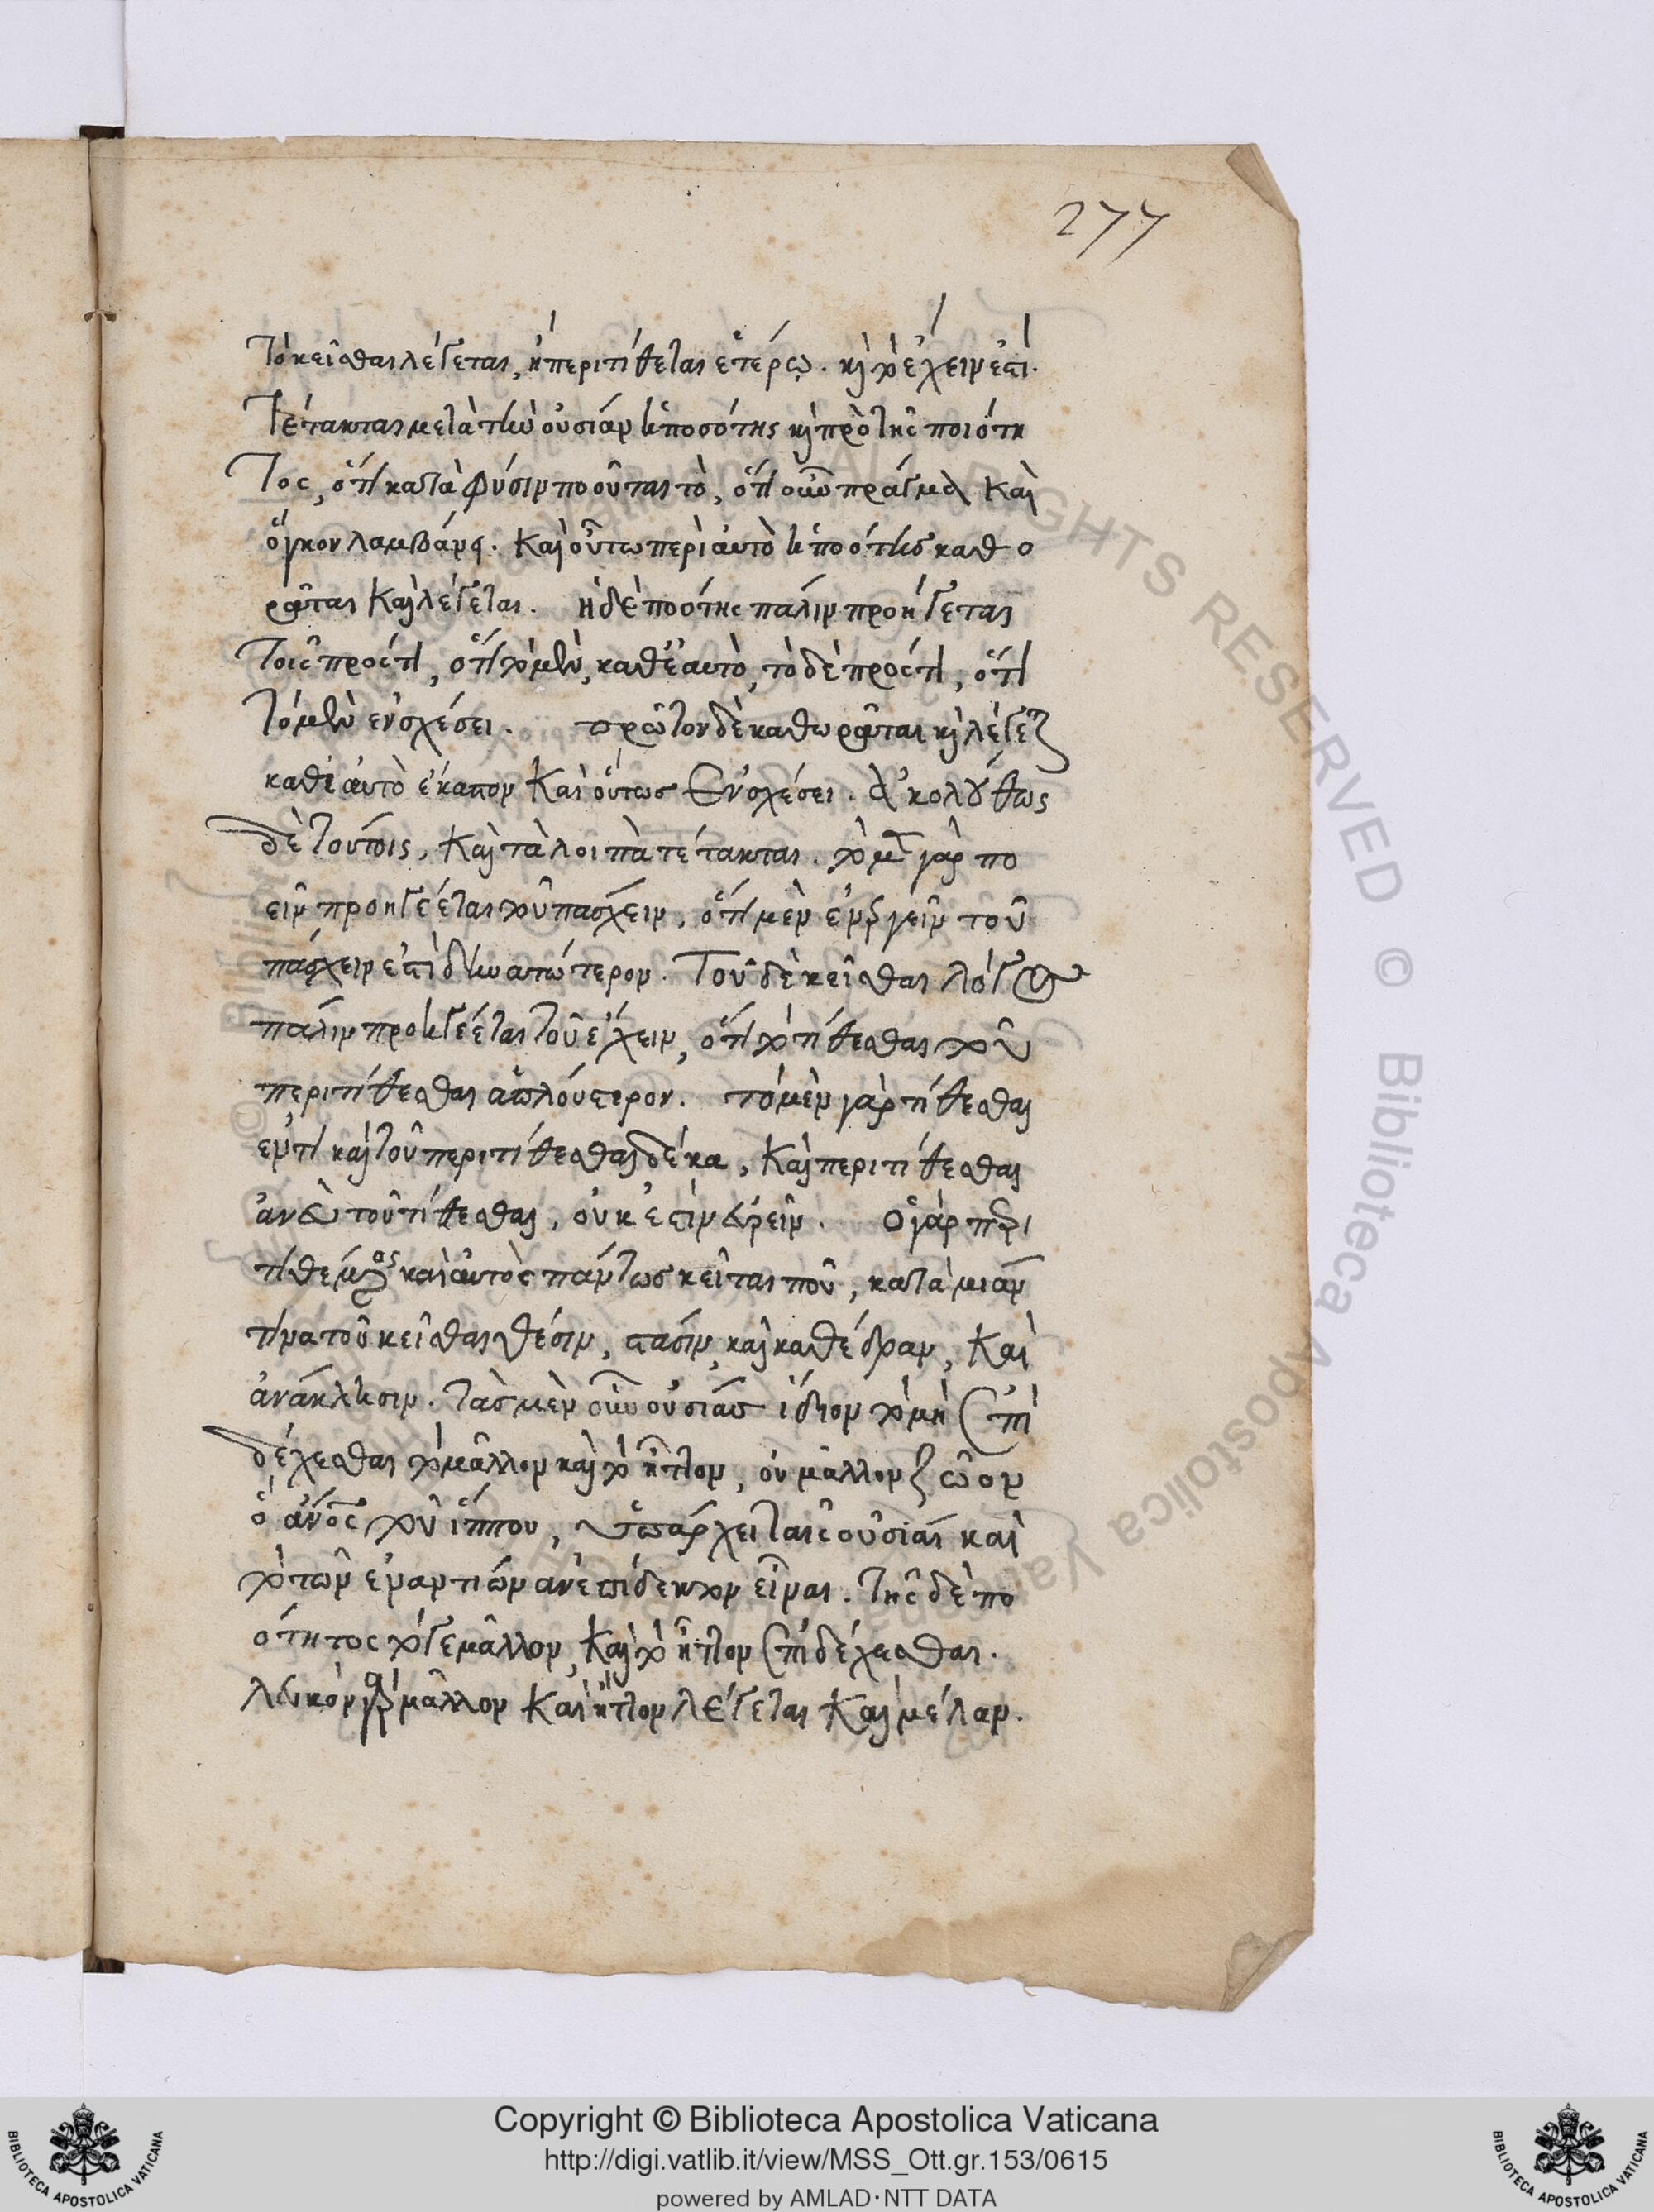 277
τὸ κεῖσθαι λέγεται, ἢ περιτίθεται ἑτέρῳ. καὶ τὸ ἔχειν ἐστί.
Τέτακται μετὰ τὴν οὐσίαν ἡ ποσότης καὶ πρὸ τῆς ποιότη
τος, ὅτι κατὰ φύσιν ποοῦται τὸ, ὅτι οὖν πράγμα καὶ
ὄγκον λαμβάνει. Καὶ οὕτω περὶ αὐτὸ ἡ ποότης καθο
ρᾶται Καὶ λέγεται. ἡ δὲ ποότης πάλιν προηγεται
τοῖς πρός τι, ὅτι τὸ μὲν, καθ' ἑαυτὸ, τὸ δὲ πρός τι, ὅτι
τὸ μὲν ἐν σχέσει. πρῶτον δὲ καθωρᾶται καὶ λέγεται
καθ' αὑτὸ ἕκαστον Καὶ οὕτως ἐν σχέσει. ἀκολούθως
δὲ τούτοις, Καὶ τὰ λοιπὰ τέτακται. τὸ μὲν γὰρ πο
εῖν προηγέεται τοῦ πάσχειν, ὅτι μὲν ἐνεργεῖν τοῦ
πάσχειν ἐστὶ δυνατώτερον. Τοῦ δὲ κεῖσθαι λόγος
πάλιν προηγέεται τοῦ ἔχειν, ὅτι τὸ τίθεσθαι τοῦ
περιτίθεσθαι ἁπλούστερον. τὸ μὲν γὰρ τίθεσθαι
ἔστι καὶ τοῦ περιτίθεσθαι δίχα, Καὶ περιτίθεσθαι
ἄνευ τοῦ τίθεσθαι, οὐκ ἔστιν εὑρεῖν. Ὁ γὰρ περι
τιθέμενος καὶ αὐτὸς πάντως κεῖται ποῦ, κατὰ μίαν
τινα τοῦ κεῖσθαι θέσιν, στάσιν, καὶ καθέδραν, Καὶ
ἀνάκλησιν. τὰς μὲν οὖν οὐσίας ἴδιον τὸ μὴ ἐπι
δέχεσθαι τὸ μᾶλλον καὶ τὸ ἧττον, οὐ μᾶλλον ζῶον
ὁ ἄνος τοῦ ἵππου, ὑπάρχει ταῖς οὐσίαις καὶ
τὸ τῶν ἐναντιων ἀνεπίδεκτον εἶναι. τῆς δὲ πο
ότητος τό γε μᾶλλον, Καὶ τὸ ἧττον ἐπιδέχεσθαι.
λευκὸν γὰρ μᾶλλον Καὶ ἧττον λέγεται Καὶ μέλαν.
Copyright © Biblioteca Apostolica Vaticana
http://digi.vatlib.it/view/MSS_Ott.gr.153/0615
powered by AMLAD·NTT DATA